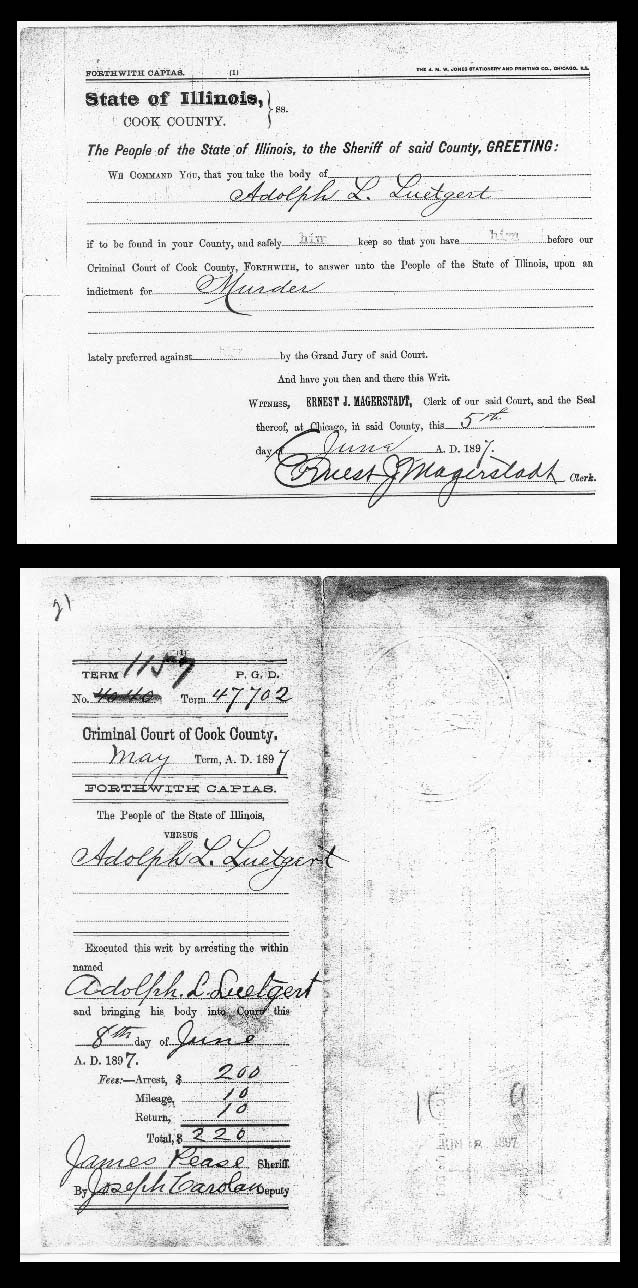 FORTHWITH CAPIAS. (1) THE J. M. W. JONES STATIONERY AND PRINTING CO., CHICAGO, ILL.
State of Illinois, } ss.
COOK COUNTY.
The People of the State of Illinois, to the Sheriff of said County, GREETING:
WE COMMAND YOU, that you take the body of
Adolph L. Luetgert
if to be found in your County, and safely him keep so that you have him before our
Criminal Court of Cook County, FORTHWITH, to answer unto the People of the State of Illinois, upon an
indictment for Murder
lately preferred against him by the Grand Jury of said Court.
And have you then and there this Writ.
WITNESS, ERNEST J. MAGERSTADT, Clerk of our said Court, and the Seal
thereof, at Chicago, in said County, this 5th
day of June A. D. 1897.
Ernest J Magerstadt Clerk.
21
(1)
TERM 1157 P. G. D.
No. Term 47702
Criminal Court of Cook County,
May Term, A. D. 1897
FORTHWITH CAPIAS.
The People of the State of Illinois,
VERSUS
Adolph L. Luetgert
Executed this writ by arresting the within
named
Adolph. L. Luetgert
and bringing his body into Court this
8th day of June
A. D. 1897.
Fees:—Arrest, $ 200
Mileage, 10
Return, 10
Total, $ 220
James Pease Sheriff
By Joseph Carolan Deputy